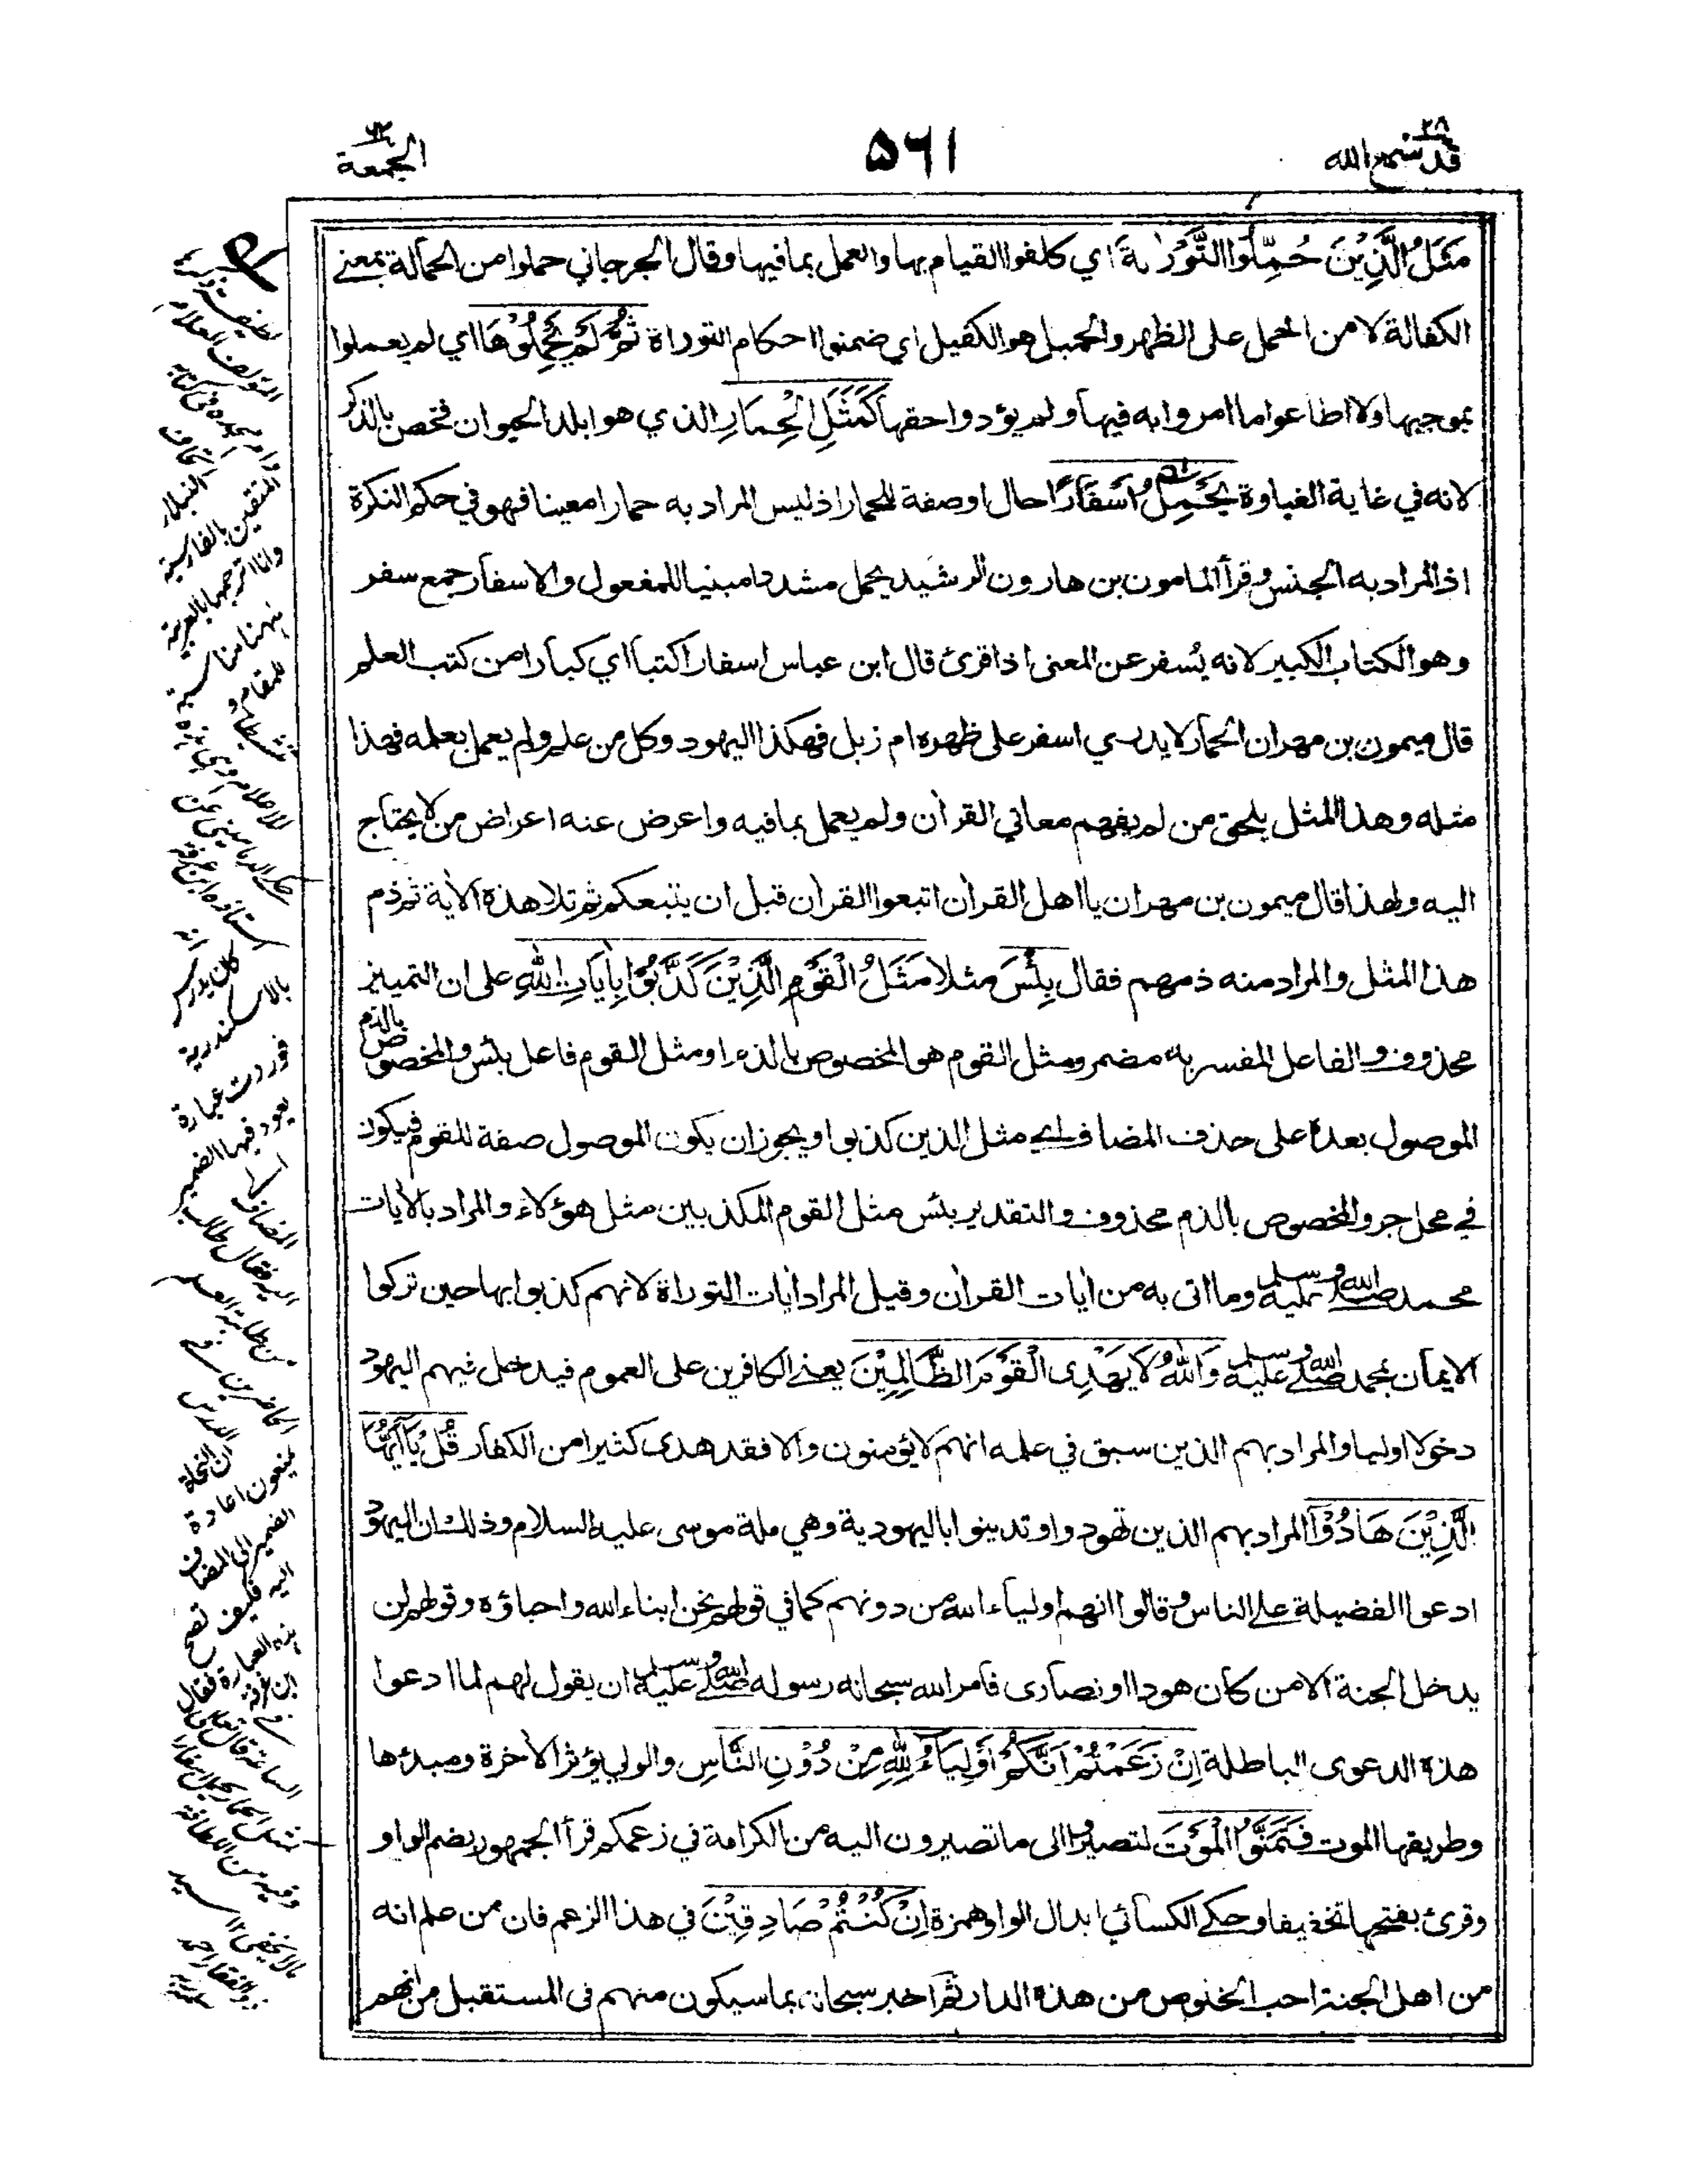 قد سمع الله ٢٨
٥٦١
الجمعة ٦٢
مَثَلُ الَّذِيْنَ حُمِّلُوا التَّوْرٰىةَ اي كلفوا القيام بها والعمل بما فيها وقال الجرجاني حملوا من الحمالة بمعنى
الكفالة لا من الحمل على الظهر والحميل هو الكفيل اي ضمنوا احكام التوراة ثُمَّ لَمْ يَحْمِلُوْهَا اي لم يعملوا
بموجبها ولا اطاعوا ما امروا به فيها ولم يؤدوا حقها كَمَثَلِ الْحِمَارِ الذي هو ابلد الحيوان فخص بالذكر
لانه في غاية الغباوة يَحْمِلُ اَسْفَارًا حال او صفة للحمار اذ ليس المراد به حمارا معينا فهو في حكم النكرة
اذ المراد به الجنس وقرأ المامون بن هارون الرشيد يحمل مشددا مبنيا للمفعول والاسفار جمع سفر
وهو الكتاب الكبير لانه يُسفر عن المعنى اذا قرئ قال ابن عباس اسفارا كتبا اي كبارا من كتب العلم
قال ميمون بن مهران الحمار لا يدري اسفر على ظهره ام زبل فهكذا اليهود وكل من علم ولم يعمل بعلمه فهذا
مثله وهذا المثل يلحق من لم يفهم معاني القرآن ولم يعمل بما فيه واعرض عنه اعراض من لا يحتاج
اليه ولهذا قال ميمون بن مهران يا اهل القرآن اتبعوا القرآن قبل ان يتبعكم ثم تلا هذه الآية ثم ذم
هذا المثل والمراد منه ذمهم فقال بِئْسَ مثلا مَثَلُ الْقَوْمِ الَّذِيْنَ كَذَّبُوْا بِاٰيَاتِ اللهِ على ان التمييز
محذوف والفاعل المفسر به مضمر ومثل القوم هو المخصوص بالذم او مثل القوم فاعل بئس والمخصوص بالذم
الموصول بعده على حذف المضاف اي مثل الذين كذبوا ويجوز ان يكون الموصول صفة للقوم فيكون
في محل جر والمخصوص بالذم محذوف والتقدير بئس مثل القوم المكذبين مثل هؤلاء والمراد بالآيات
محمد صلى الله عليه وسلم وما اتى به من آيات القرآن وقيل المراد آيات التوراة لانهم كذبوا بها حين تركوا
الايمان بمحمد صلى الله عليه وسلم وَاللهُ لَا يَهْدِى الْقَوْمَ الظّٰلِمِيْنَ يعني الكافرين على العموم فيدخل فيهم اليهود
دخولا اوليا والمراد بهم الذين سبق في علمه انهم لا يؤمنون والا فقد هدى كثيرا من الكفار قُلْ يَاۤاَيُّهَا
الَّذِيْنَ هَادُوْۤا المراد بهم الذين تهودوا وتدينوا باليهودية وهي ملة موسى عليه السلام وذلك ان اليهود
ادعوا الفضيلة على الناس وقالوا انهم اولياء الله من دونهم كما في قولهم نحن ابناء الله واحباؤه وقولهم لن
يدخل الجنة الا من كان هودا او نصارى فامر الله سبحانه رسوله صلى الله عليه وسلم ان يقول لهم لما ادعوا
هذه الدعوى الباطلة اِنْ زَعَمْتُمْ اَنَّكُمْ اَوْلِيَآءُ لِلّٰهِ مِنْ دُوْنِ النَّاسِ والولي يؤثر الآخرة ومبدؤها
وطريقها الموت فَتَمَنَّوُا الْمَوْتَ لتصيروا الى ما تصيرون اليه من الكرامة في زعمكم قرأ الجمهور بضم الواو
وقرئ بفتحها تخفيفا وحكى الكسائي ابدال الواو همزة اِنْ كُنْتُمْ صَادِقِيْنَ في هذا الزعم فان من علم انه
من اهل الجنة احب الخلوص من هذه الدار ثم اخبر سبحانه بما سيكون منهم في المستقبل من انهم
المتقين بالفارسية
وانا اترجمها بالعربية
كان يدرس
بالاسكندرية
فوردت عبارة
يعود فيها الضمير
الى
المضاف
اليه فقال طالب
من طلبة العلم
الحاضرين في
الدرس
ان النحاة
يمنعون اعادة
الضمير الى المضاف
اليه فكيف تصح
هذه العبارة فقال
ابن عرفة
في
الساعة قال تعالى
كمثل الحمار يحمل اسفارا
وفيه من اللطافة
ما لا يخفى ١٢ سيد
ذو الفقار احمد